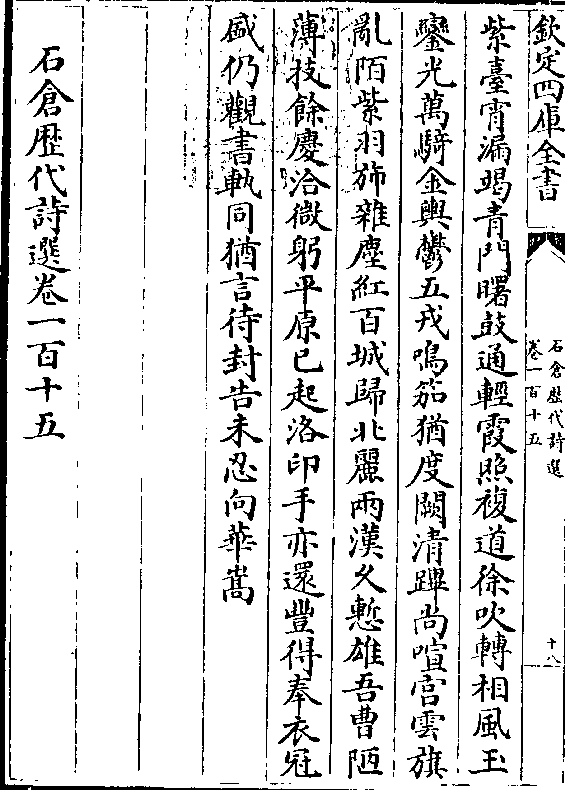 欽定四庫全書
石倉歷代詩選
卷一百十五
十八
紫臺宵漏竭青門曙鼓通輕霞照複道徐吹轉相風玉
鑾光萬騎金輿鬱五戎鳴笳猶度闕清蹕尚喧宫雲旗
亂陌紫羽斾雜塵紅百城歸北麗兩漢久慙雄吾曹陋
薄技餘慶洽微躬平原已起洛印手亦還豐得奉衣冠
盛仍觀書軌同猶言待封告未忍向華嵩
石倉歷代詩選卷一百十五